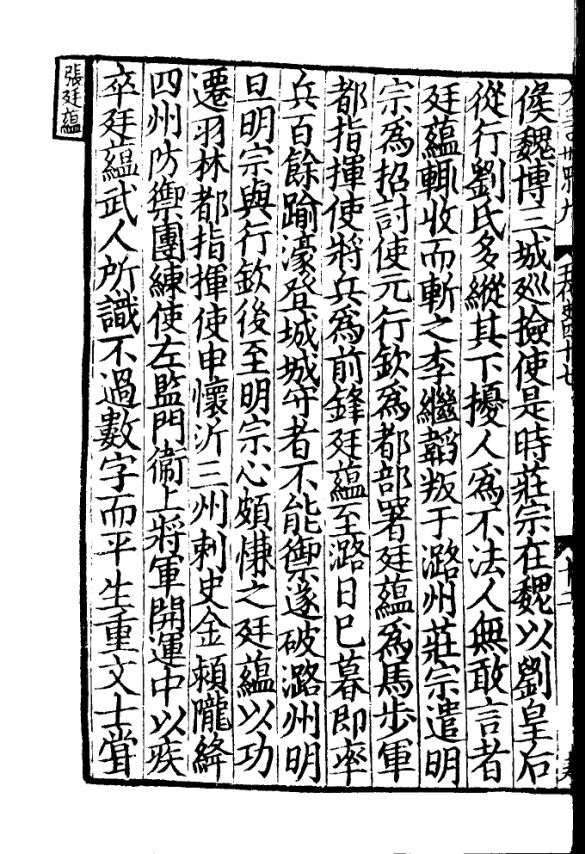 侯魏博三城廵撿使是時莊宗在魏以劉皇后
從行劉氏多縱其下擾人爲不法人無敢言者
廷蘊輒收而斬之李繼韜叛于潞州莊宗遣明
宗爲招討使元行欽爲都部署廷蘊爲馬步軍
都指揮使將兵爲前鋒廷蘊至潞日已暮即率
兵百餘踰濠登城城守者不能禦遂破潞州明
旦明宗與行欽後至明宗心頗慊之廷蘊以功
遷羽林都指揮使申懷沂三州刺史金潁隴絳
四州防禦團練使左監門衞上將軍開運中以疾
卒廷蘊武人所識不過數字而平生重文士甞
張廷蘊